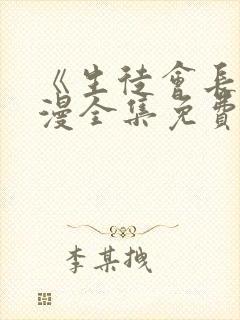 《生徒會長
漫全集免費
李某拽